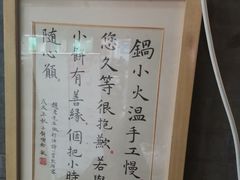 鍋小火溫手工慢
您久等很抱歉若與
小餅有善緣個把小時
隨心願